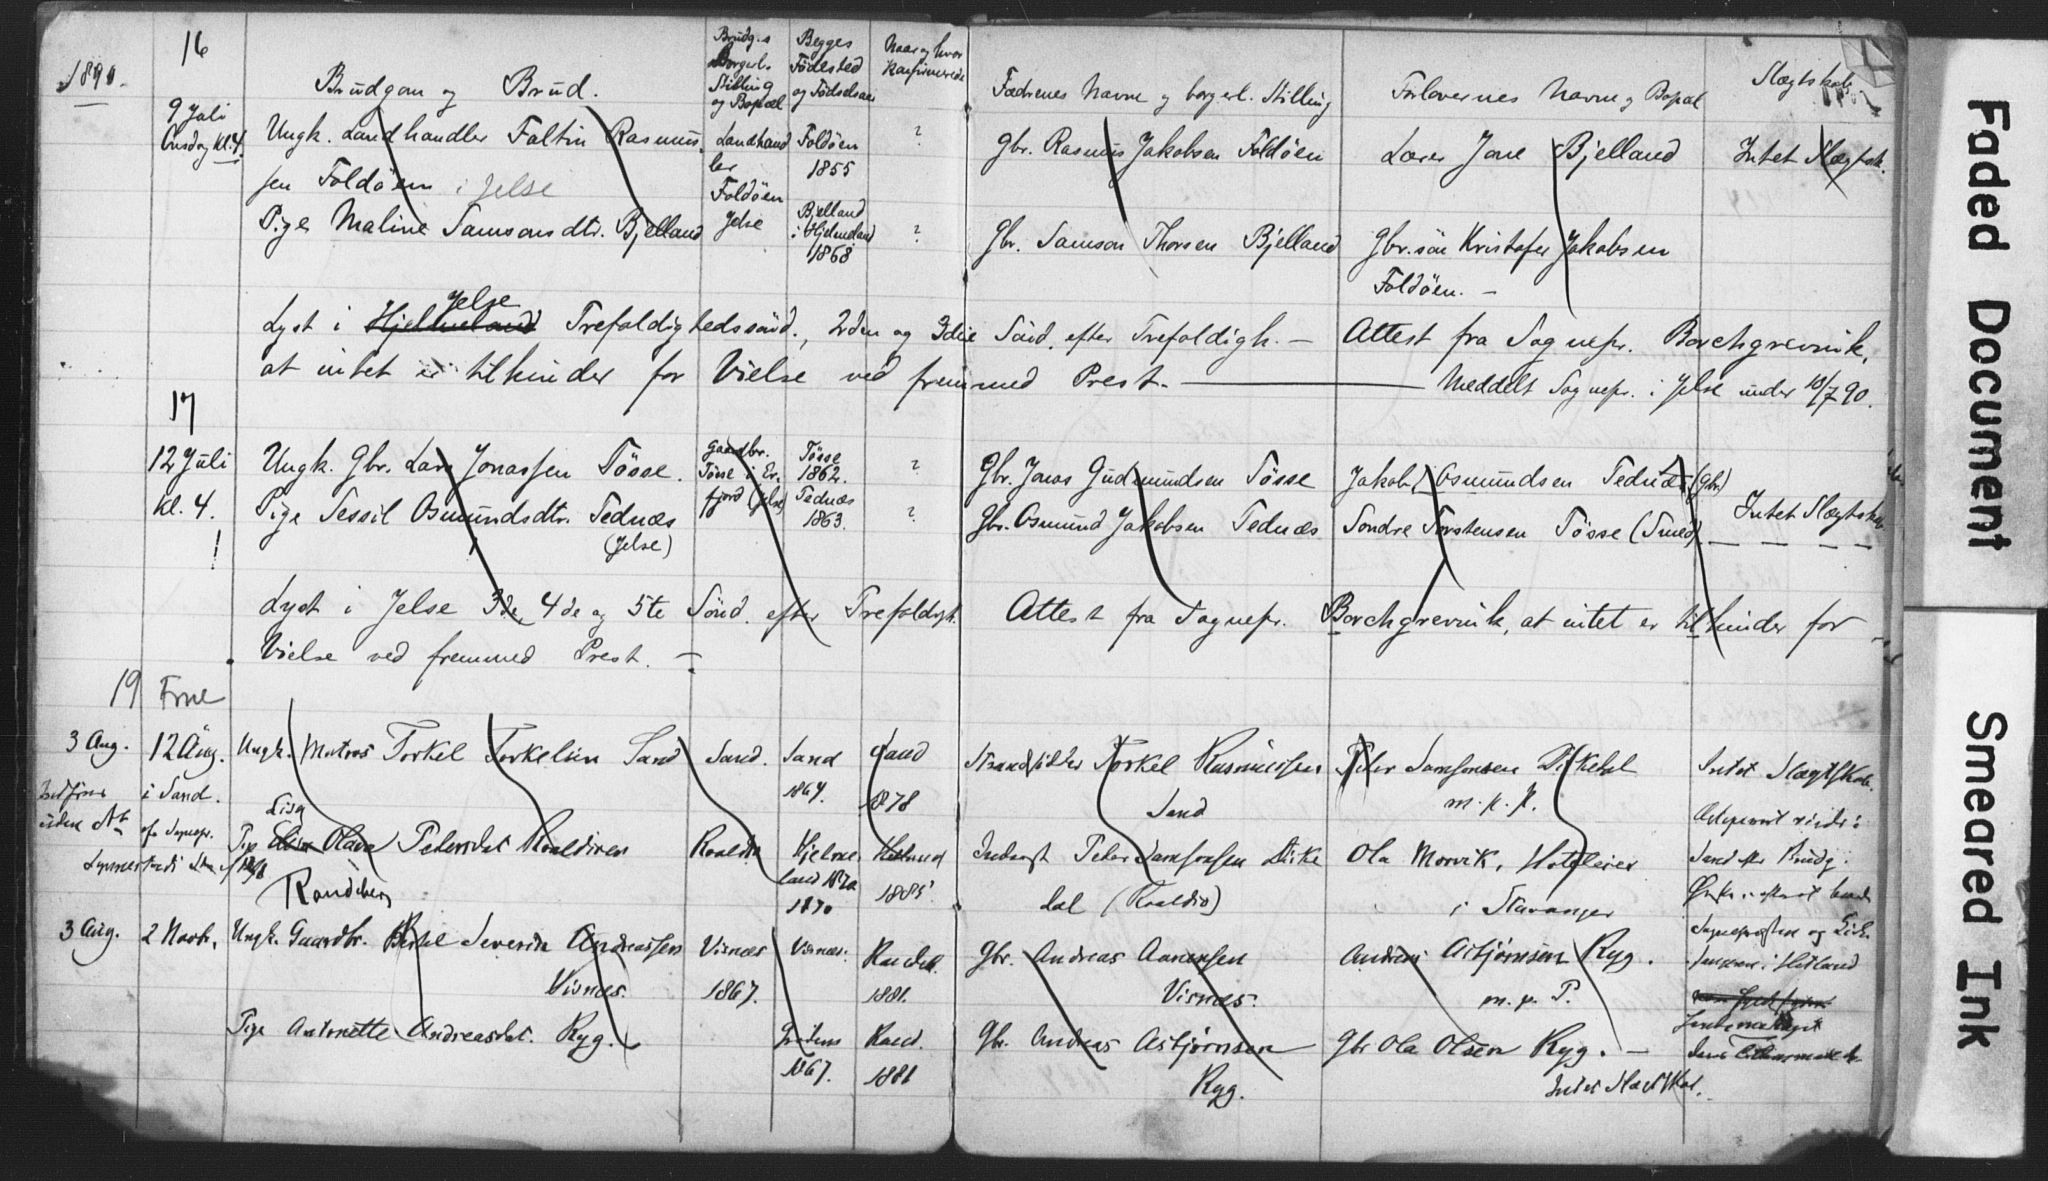 1890.
16
Brudgom og Brud.
Brudg.s Borgerl. Stilling og Bopæl
Begges Födested og Födselsaar
Naar og hvor Konfirmerede
Fædrenes Navne og borgerl. Stilling
Forlovernes Navne og Bopæl
Slægtskab
9 Juli
Onsdag Kl. 4.
Ungk. Landhandler Faltin Rasmus-
sen Foldöen i Jelse
Landhand
ler
Foldöen
Jelse
Foldöen
1855
?
Gbr. Rasmus Jakobsen Foldöen
Lærer Jone Bjelland
Intet Slægtsk.
Pige Maline Samsonsdtr. Bjelland
Bjelland
i Hjelmeland
1868
?
Gbr. Samson Thorsen Bjelland
Gbr.sön Kristofer Jakobsen
Foldöen. –
Jelse
Lyst i Hjelmeland Trefoldighedssönd., 2den og 3die Sönd. efter Trefoldigh. – Attest fra Sognepr. Borchgrevink,
at intet er til hinder for Vielse ved fremmed Prest. — Meddelt Sognepr. i Jelse under 10/7 90.
17
12 Juli
Kl. 4.
!
Ungk. Gbr. Lars Jonassen Tösse.
Gaardbr.
Tösse i Er-
fjord (Jelse)
Tösse
1862.
?
Gbr. Jonas Gudmundsen Tösse
Jakob Osmundsen Tednæs (Gbr.)
Intet Slægtskab
Pige Sessil Osmundsdtr. Tednæs
(Jelse)
Tednæs
1863.
?
Gbr. Osmund Jakobsen Tednæs
Sondre Torstensen Tösse (Smed). – – – –
Lyst i Jelse 3de, 4de og 5te Sönd. efter Trefoldigh. Attest fra Sognepr. Borchgrevink, at intet er til hinder for
Vielse ved fremmed Prest. –
19
3 Aug.
12 Aug.
i Sand.
Ungk. Matros Torkel Torkelsen Sand
Sand.
Sand
1867.
Sand
1878
Strandsidder Torkel Rasmussen
Sand
Peder Samsonsen Dirkedal
m. p. P.
Intet Slægtskab.
uden
af Sognepr.
Lisa
Pige Olava Pedersdat. Roaldsnes
Randeberg
Hjelme-
land 1870
1870
Hetland
1885
Peder Samsonsen Dirke
dal
Ola Morvik, Hoteleier
i Stavanger
3 Aug.
2 Novb.
Ungk. Gaardbr. Bertel Severin Andreassen
Visnes.
Visnes
1867.
Visnes.
1881.
Gbr. Andreas Aanensen
Visnes.
Andreas Asbjörnsen Ryg.
m. p. P.
i Hetland
Pige Antonette Andreasdat. Ryg.
1867.
1881
Gbr. Andreas Asbjörnsen
Ryg.
Gbr Ola Olsen Ryg. –
Intet Slægtskab.
Faded Document
Smeared Ink